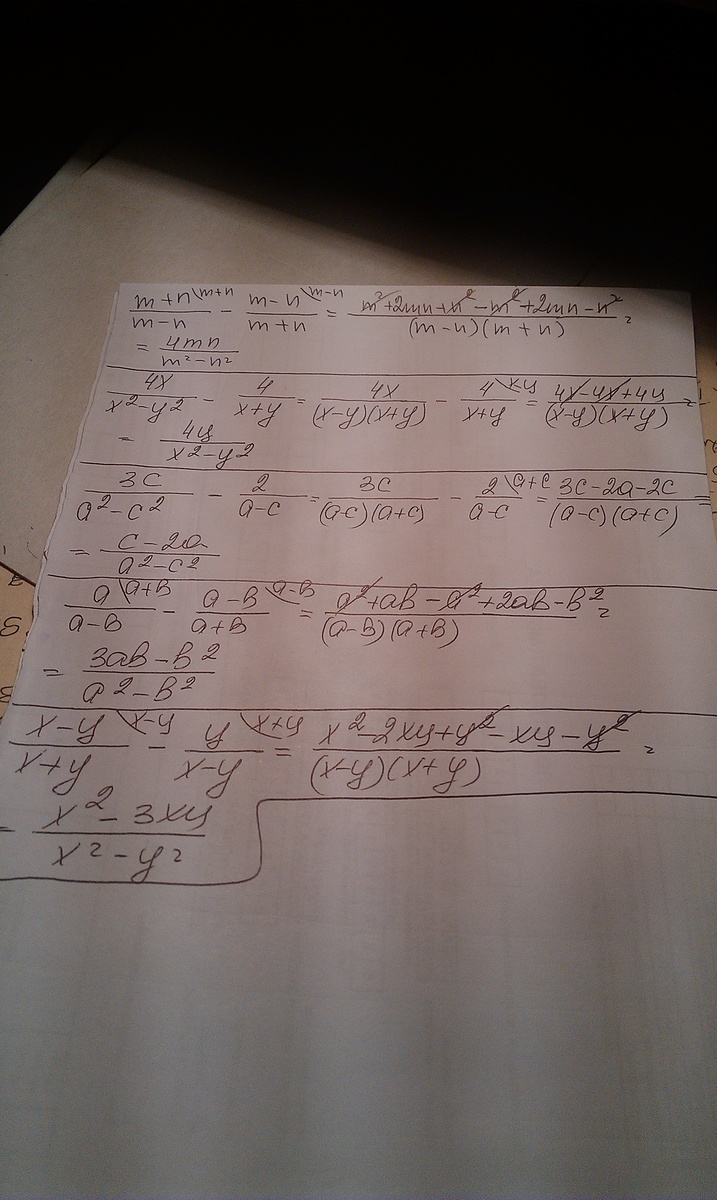 (m+n)\m+n / (m-n) - (m-n)\m-n / (m+n) = (m²+2mn+n²-m²+2mn-n²) / (m-n)(m+n) =
= 4mn / (m²-n²)
4x / (x²-y²) - 4 / (x+y) = 4x / (x-y)(x+y) - 4\x-y / (x+y) = (4x-4x+4y) / (x-y)(x+y) =
= 4y / (x²-y²)
3c / (a²-c²) - 2 / (a-c) = 3c / (a-c)(a+c) - 2\a+c / (a-c) = (3c-2a-2c) / (a-c)(a+c) =
= (c-2a) / (a²-c²)
a\a+b / (a-b) - (a-b)\a-b / (a+b) = (a²+ab-a²+2ab-b²) / (a-b)(a+b) =
= (3ab-b²) / (a²-b²)
(x-y)\x-y / (x+y) - y\x+y / (x-y) = (x²-2xy+y²-xy-y²) / (x-y)(x+y) =
= (x²-3xy) / (x²-y²)